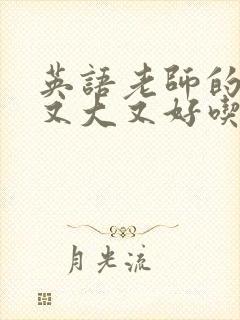 英語老師的
又大又好喫
月光流